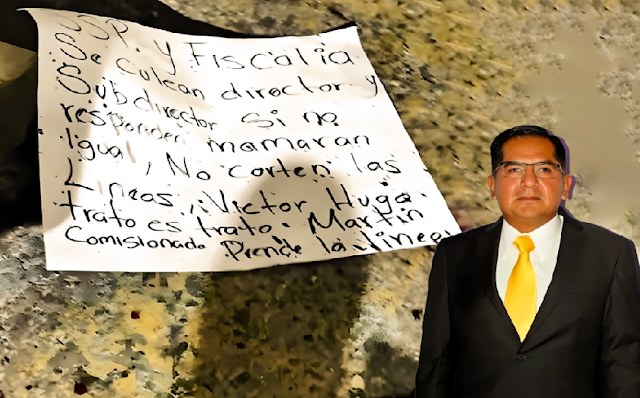 SSP. y Fiscalia
Se culcan director y
Subdirector si no
responden mamaran
Igual, No corten las
Lineas, Victor Hugo
trato es trato. Martin
Comisionado Prende la linea